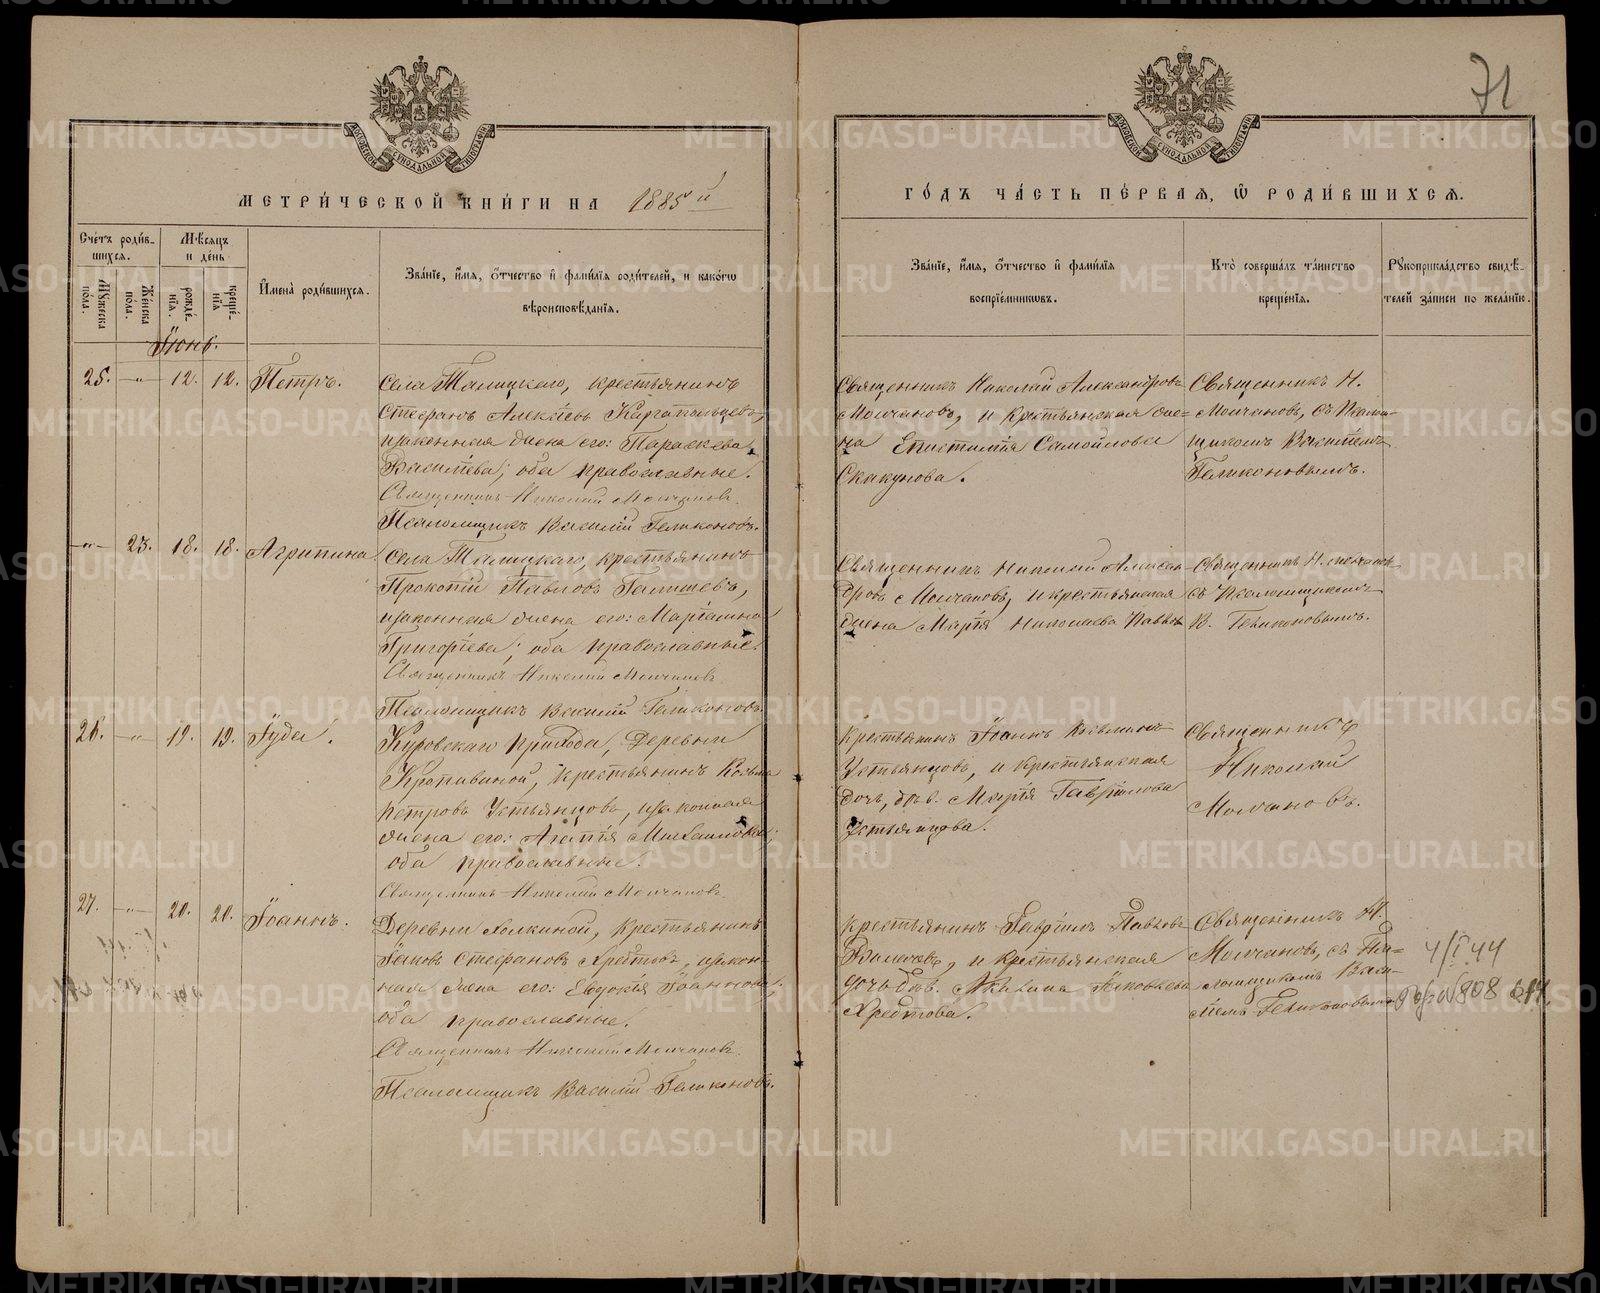 71
МЕТРИ́ЧЕСКОЙ КНИ́ГИ НА 1885й
ГО́ДЪ ЧА́СТЬ ПЕ́РВАЯ, Ѿ РОДИ́ВШИХСЯ.
МОСКОВСКОЙ СѴНОДАЛЬНОЙ ТИПОГРАФІИ
МОСКОВСКОЙ СѴНОДАЛЬНОЙ ТИПОГРАФІИ
Сче́тъ роди́в-
шихся.
Мѣ́сяцъ
и де́нь
Мꙋ́жеска по́ла.
Же́нска по́ла.
рожде́-
нія.
креще́-
нія
И҆мена̀ роди́вшихся.
Зва́ніе, и҆́мя, о҆́тчество и҆ фами́лія роди́телей, и како́гѡ
вѣроисповѣ́данія.
Зва́ніе, и҆́мя, о҆́тчество и҆ фами́лія
воспріе́мниковъ.
Кто̀ соверша́лъ та́инство
креще́нія.
Рꙋкоприкла́дство свидѣ́-
телей за́писи по жела́нію.
Іюнь.
25. —„— 12. 12. Петръ.
Села Талицкаго, крестьянинъ
Стефанъ Алексѣевъ Каргапольцевъ,
и законная жена его: Параскева
Василіева; оба православные.
Священникъ Николай Молчановъ.
Псаломщикъ Василій Геликоновъ.
Священникъ Николай Александровъ
Молчановъ, и крестьянская же-
на Епистимія Самойлова
Скакунова.
Священникъ Н.
Молчановъ, съ Псалом-
щикомъ Василіемъ
Геликоновымъ.
—„— 23. 18. 18. Агрипина
Села Талицкаго, крестьянинъ
Прокопій Павловъ
законная жена его:
Григоріева; оба православные.
Священникъ Николай Молчановъ.
Псаломщикъ Василій Геликоновъ.
Священникъ Николай Алексан-
дровъ Молчановъ, и крестьянская
жена Марія Николаева
Священникъ Н. Молчановъ
съ Псаломщикомъ
В. Геликоновымъ.
26. —„— 19. 19. Іуда.
Куровскаго прихода, Деревни
Крапивиной, крестьянинъ Козьма
Петровъ Устьянцовъ, и законная
жена его: Агапія Михаилова;
оба православные.
Священникъ Николай Молчановъ.
Крестьянинъ Іоаннъ Козьминъ
Устьянцовъ, и крестьянская
дочь, дѣв. Марія Гаврілова
Устьянцова.
Священникъ
Николай
Молчановъ.
27. —„— 20. 20. Іоаннъ.
Деревни Холкиной, крестьянинъ
Іаковъ Стефановъ Хребтовъ, и закон-
ная жена его: Евдокія Іоаннова;
оба православные.
Священникъ Николай Молчановъ.
Псаломщикъ Василій Геликоновъ.
Крестьянинъ Гавріилъ Павловъ
и крестьянская
дочь дѣв. Акилина Іаковлева
Хребтова.
Священникъ Н.
Молчановъ, съ Пса-
ломщикомъ Васи-
ліемъ Геликоновымъ
4/I 44
808
METRIKI.GASO-URAL.RU